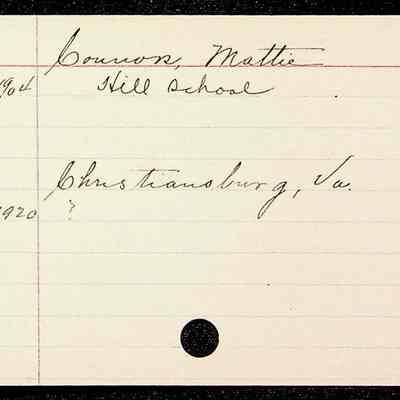 Connors, Mattie
1904 Hill School
Christiansburg, Va.
1920 ?